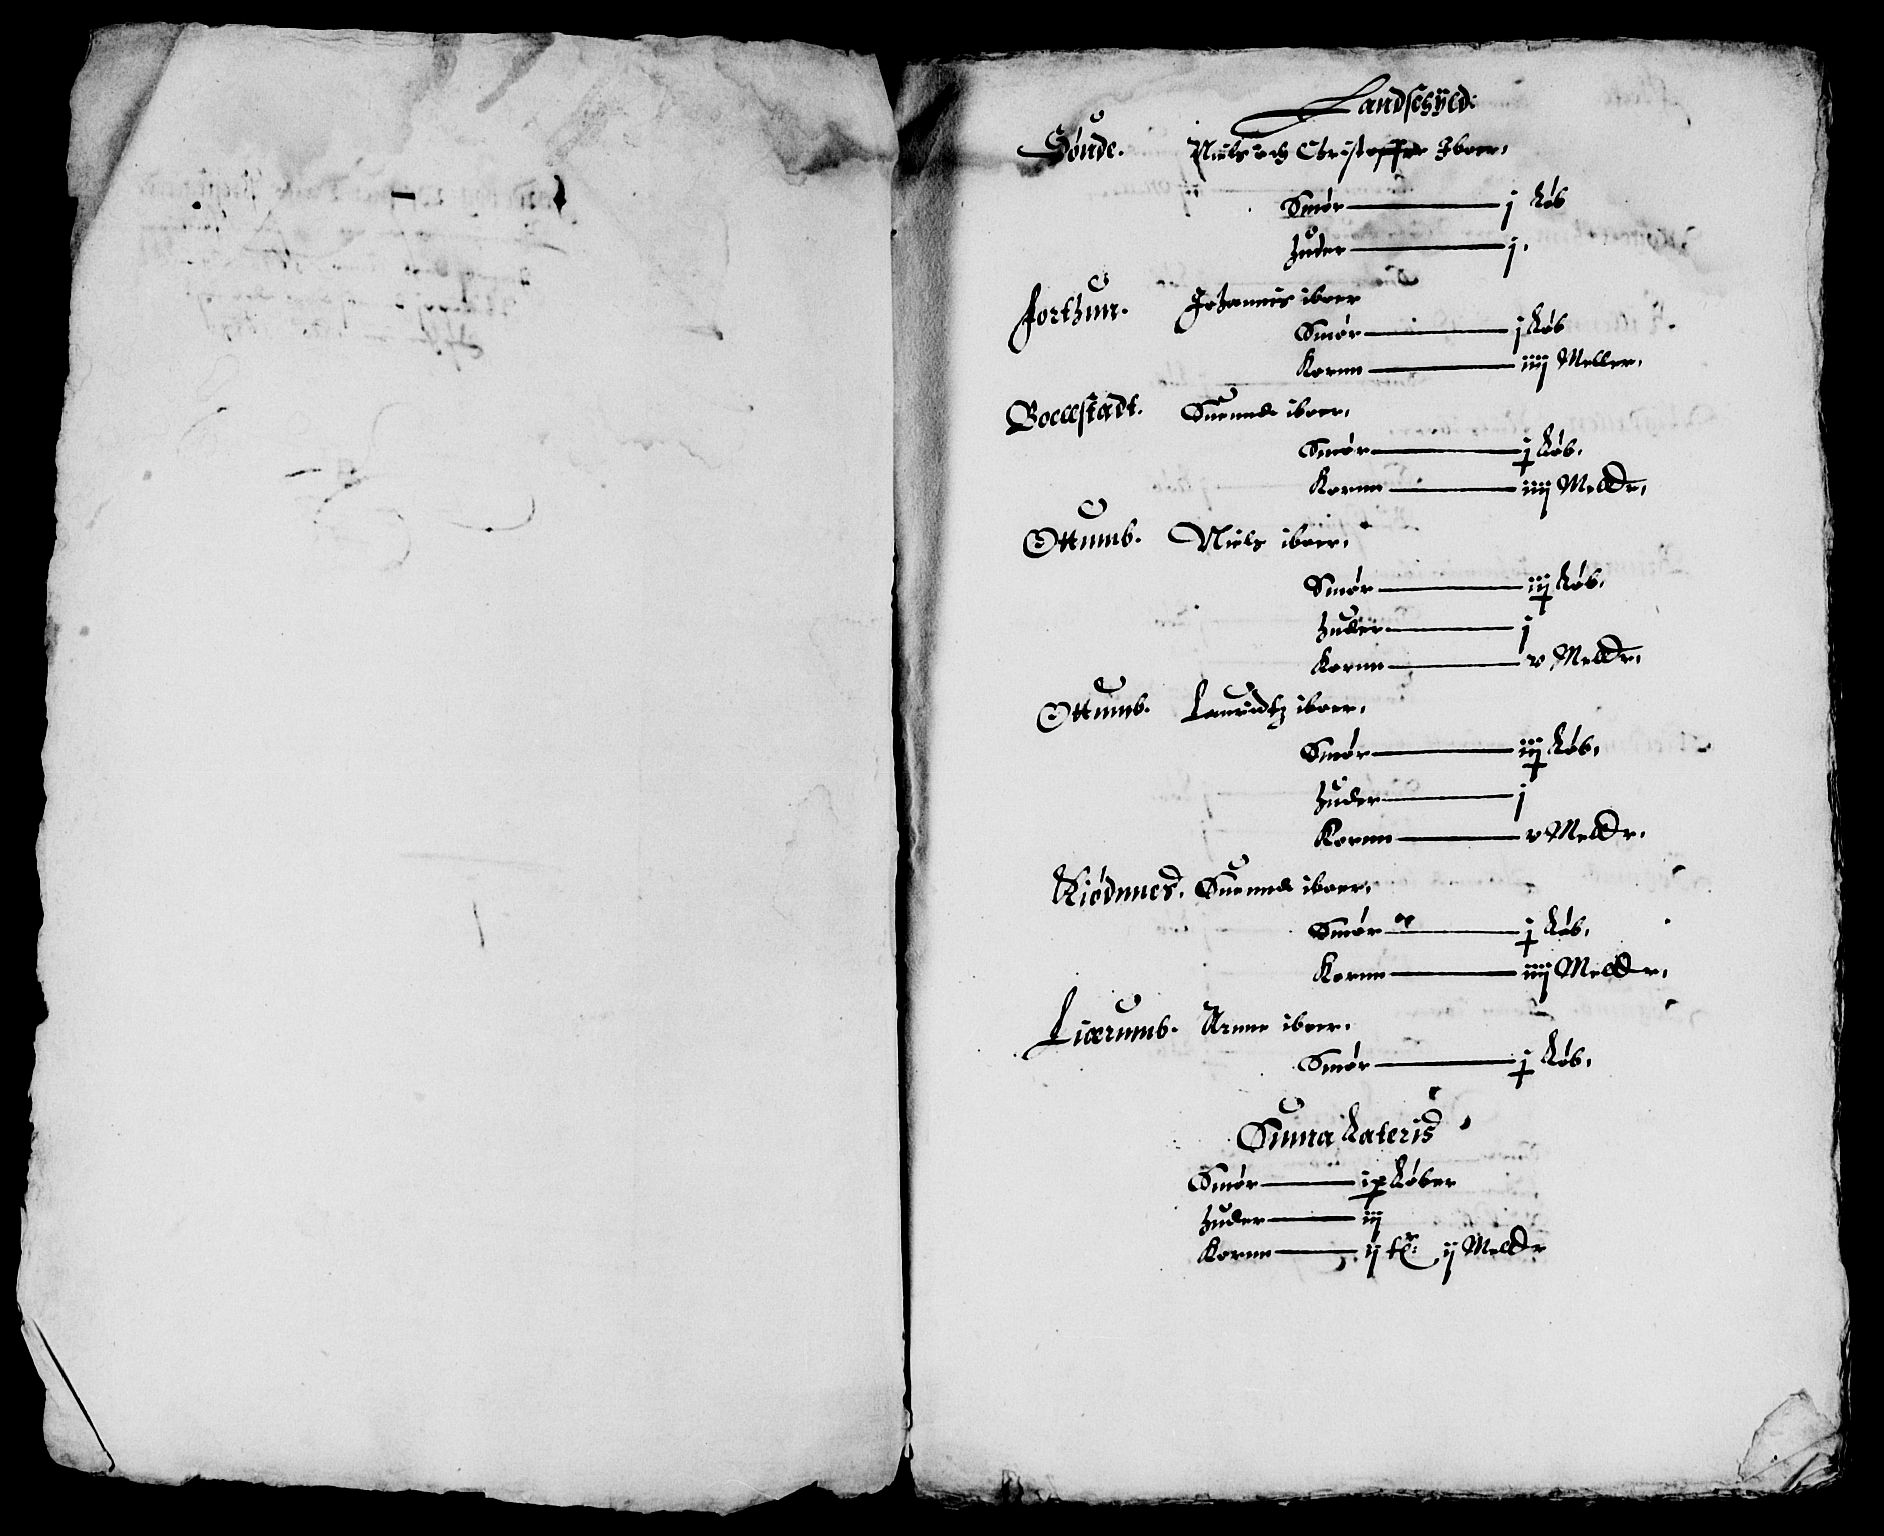 Landschÿld:
Sønde. Niels och Christoffer Iboer,
Smør j Løb
huder j,
Forthun. Johannis iboer
Smør j Løb
Kornn iiij Meller,
Boellstadt. Suennd iboer,
Smør j Løb,
Kornn iiij Melldr,
Ottumb. Niels iboer,
Smør iij Løb,
huder j
Kornn v Melldr,
Ottumb. Lauridtz iboer,
Smør iij Løb,
huder j
Kornn v Melldr,
Kiødnnes. Suennd iboer,
Smør j Løb,
Kornn iiij Melldr,
Liærumb. Arnne iboer,
Smør j Løb,
Suma Lateris
Smør ix Løber
huder iij
Kornn ij ij Melldr